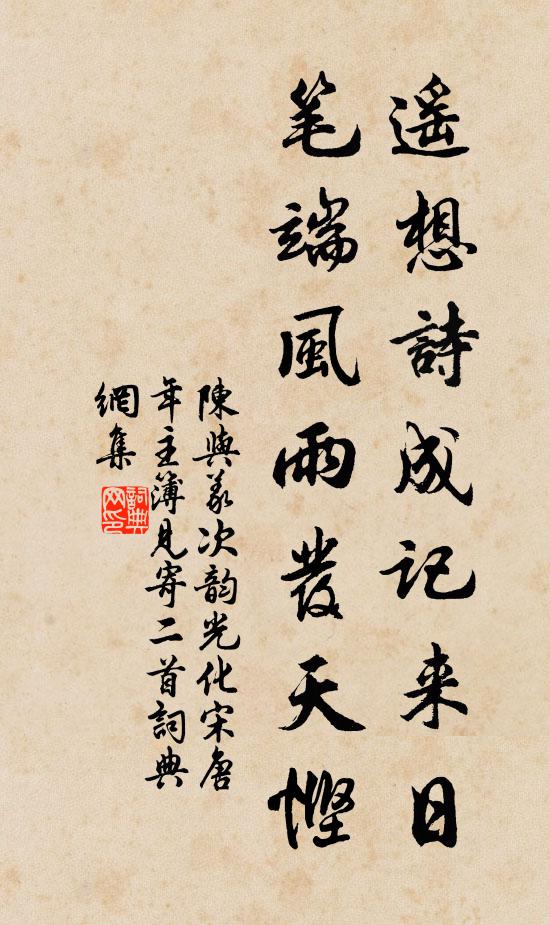 遥想詩成記来日
笔端風雨發天慳
陳與義次韵光化宋唐
年主簿見寄二首詞典
網集
詞典网印